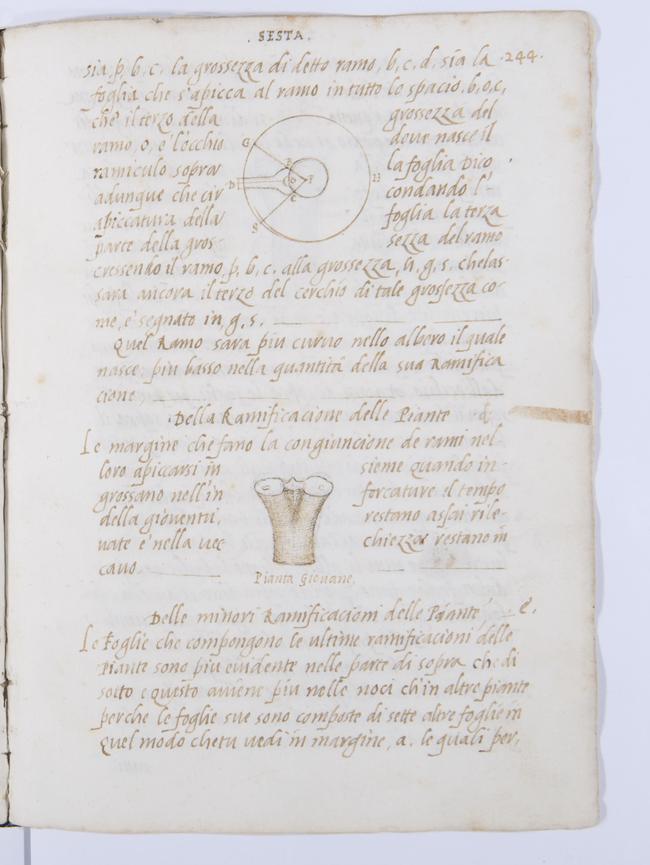 . SESTA .
.244.
sia, p, b, c. la grossezza di detto ramo, b, c, d, sia la
foglia che s'apicca al ramo in tutto lo spacio, b, o, c,
che è il terzo della grossezza del
ramo, o, è l'occhio doue nasce il
ramiculo sopra la foglia Dico
adunque che cir condando l'
apiccatura della foglia la terza
parte della gros sezza del ramo
G
B
D
O
F
H
C
S
cressendo il ramo, p, b, c. alla grossezza, h, g, s. che las-
sara ancora il terzo del cerchio di tale grossezza co-
me, è segnato in, g, s.
Quel Ramo sara piu curuo nello albero il quale
nasce piu basso nella quantità della sua Ramifica
cione
Della Ramificacione delle Piante
Le margine che fano la congiuncione de rami nel
loro apiccarsi in sieme quando in-
grossano nell'in forcature el tempo
della giouentu, restano assai rile-
uate e nella uec chiezza restano in
cauo
Pianta Giouane,
Delle minori Ramificacioni delle Piante, e.
Le Foglie che compongono le ultime ramificacioni delle
Piante sono piu euidente nelle parte di sopra che di
sotto e questo auiene piu nelle noci ch'in altre piante
perche le foglie sue sono composte di sette altre foglie in
quel modo che tu uedi in margine, a. le quali per,